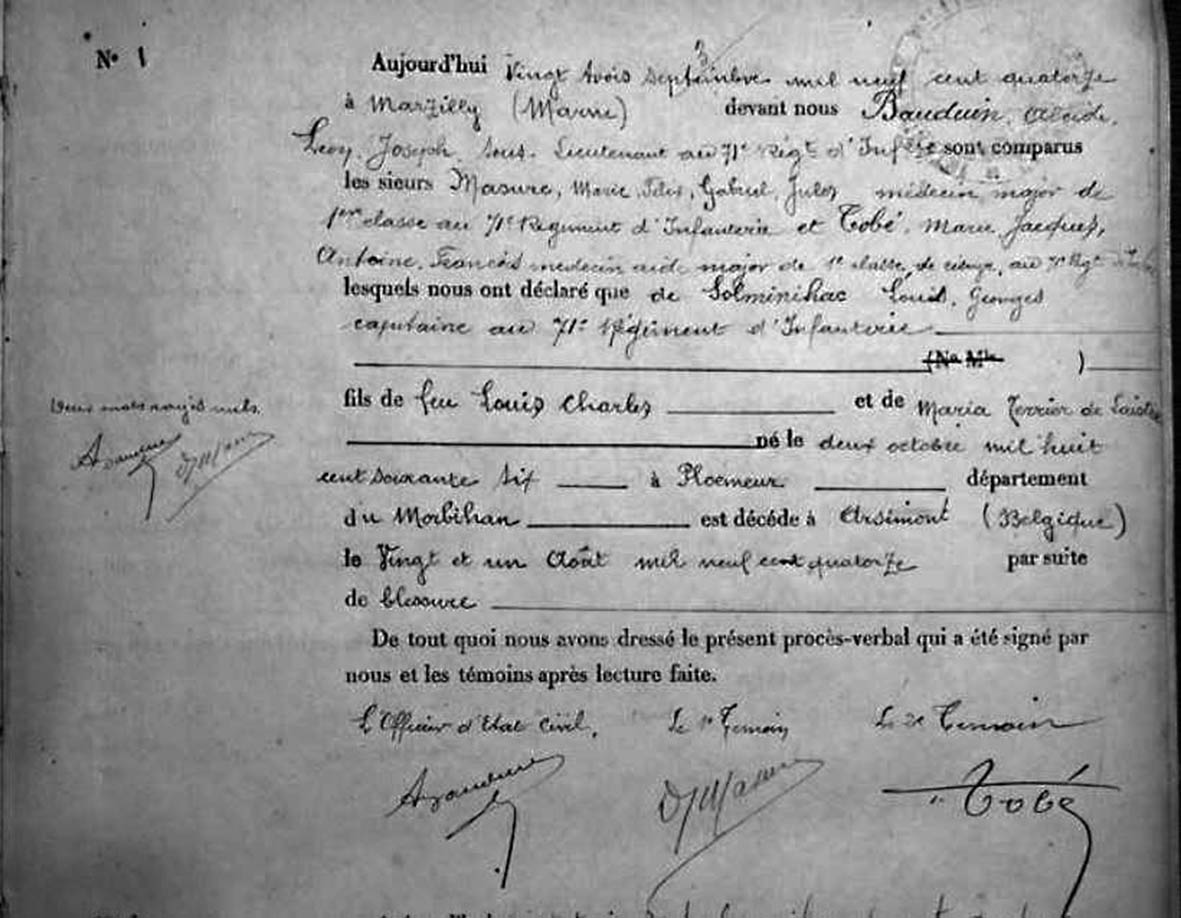 N° 1
3
Aujourd'hui Vingt trois septembre mil neuf cent quatorze
à Marzilly (Marne) devant nous Bauduin, Alcide,
Léon, Joseph, sous-Lieutenant au 71e Régt d'Inf<sup>rie</sup> sont comparus
les sieurs Masure, Marie, Félix, Gabriel, Jules, médecin major de
1ère classe au 71e Régiment d'Infanterie et Tobé, Marie, Jacques,
Antoine, Francès médecin aide major de 1e classe, de réserve, au 71e Régt
lesquels nous ont déclaré que de Solminihac Louis, Georges
capitaine au 71e Régiment d'Infanterie
(No Mle )
fils de feu Louis Charles et de Maria Terrier de
Deux mots rayés nuls.
né le deux octobre mil huit
cent soixante six à Ploemeur département
du Morbihan est décédé à Arsimont (Belgique)
le Vingt et un Août mil neuf cent quatorze par suite
de blessure
De tout quoi nous avons dressé le présent procès-verbal qui a été signé par
nous et les témoins après lecture faite.
L'Officier d'Etat Civil, Le 1er Témoin Le 2e Témoin
Masure Tobé